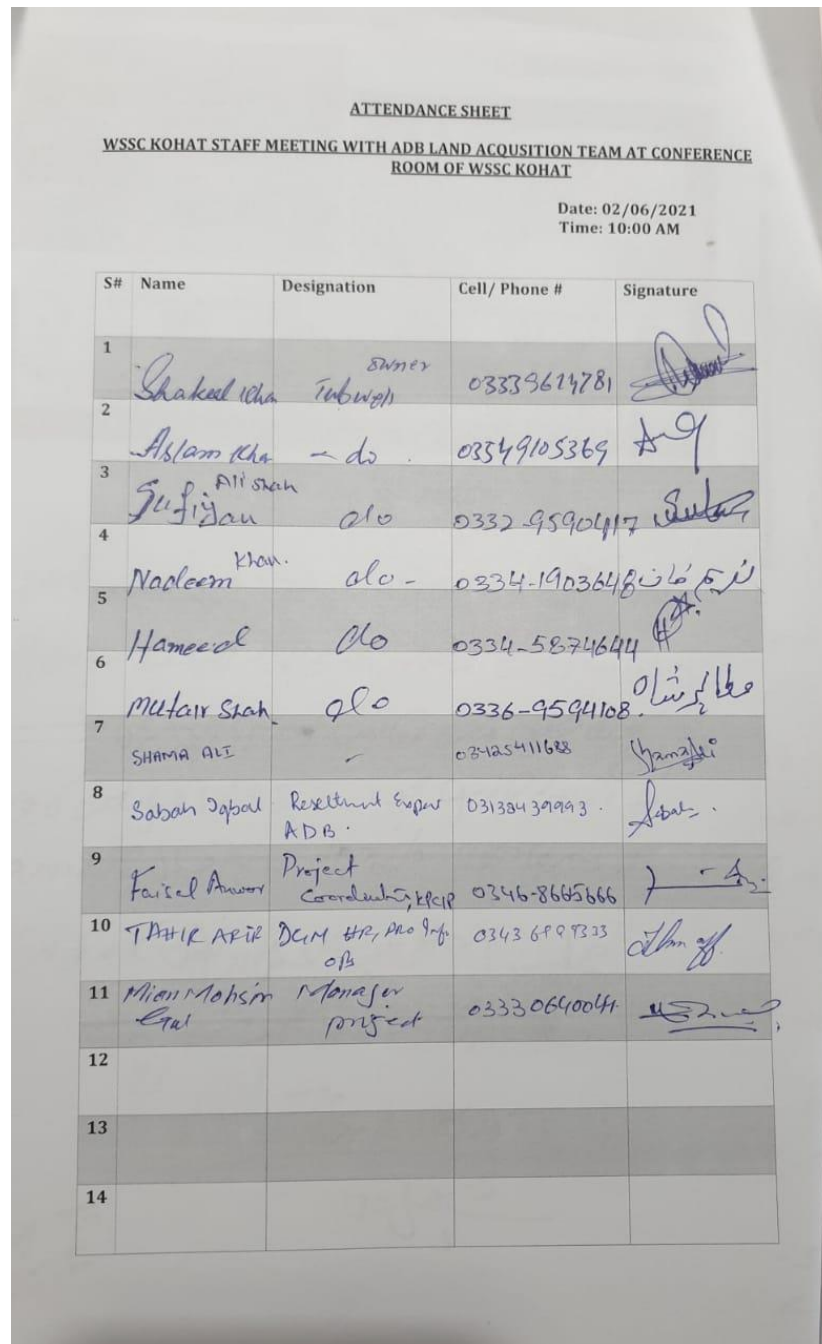 ATTENDANCE SHEET
WSSC KOHAT STAFF MEETING WITH ADB LAND ACQUSITION TEAM AT CONFERENCE
ROOM OF WSSC KOHAT
Date: 02/06/2021
Time: 10:00 AM
S# Name Designation Cell/ Phone # Signature
1 Shakeel Kha owner
Tubwell 03339614781
2 Aslam Kha - do . 03549105369
3 Sufiyan Ali Shah do 0332-9590417
4 Nadeem Khan. do - 0334-1903648 ندیم خان
5 Hameed do 0334-5874644
6 Mutair Shah do 0336-9594108. مطاہر شاہ
7 SHAMA ALI - 03425411688 Shamaali
8 Sabah Iqbal ADB. 03138439993. Sabah.
9 Faisal Anwar Project
Coordinator, KPCIP 0346-8665666
10 TAHIR ARIF DGM HR, PRO
11 Mian Mohsin Manager
Gul project 03330640041
12
13
14